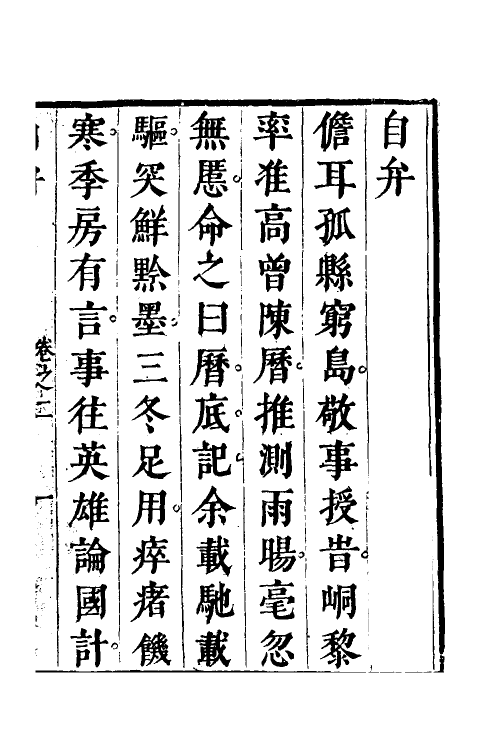 自弁
儋耳孤縣窮島。敬事授旹。峒黎
率准高曾陳曆。推測雨暘。毫忽
無慝。命之曰曆底。記余載馳載
驅。突鮮黔墨。三冬足用。瘁瘏饑
寒。季房有言。事往英雄論國計。
卷之二